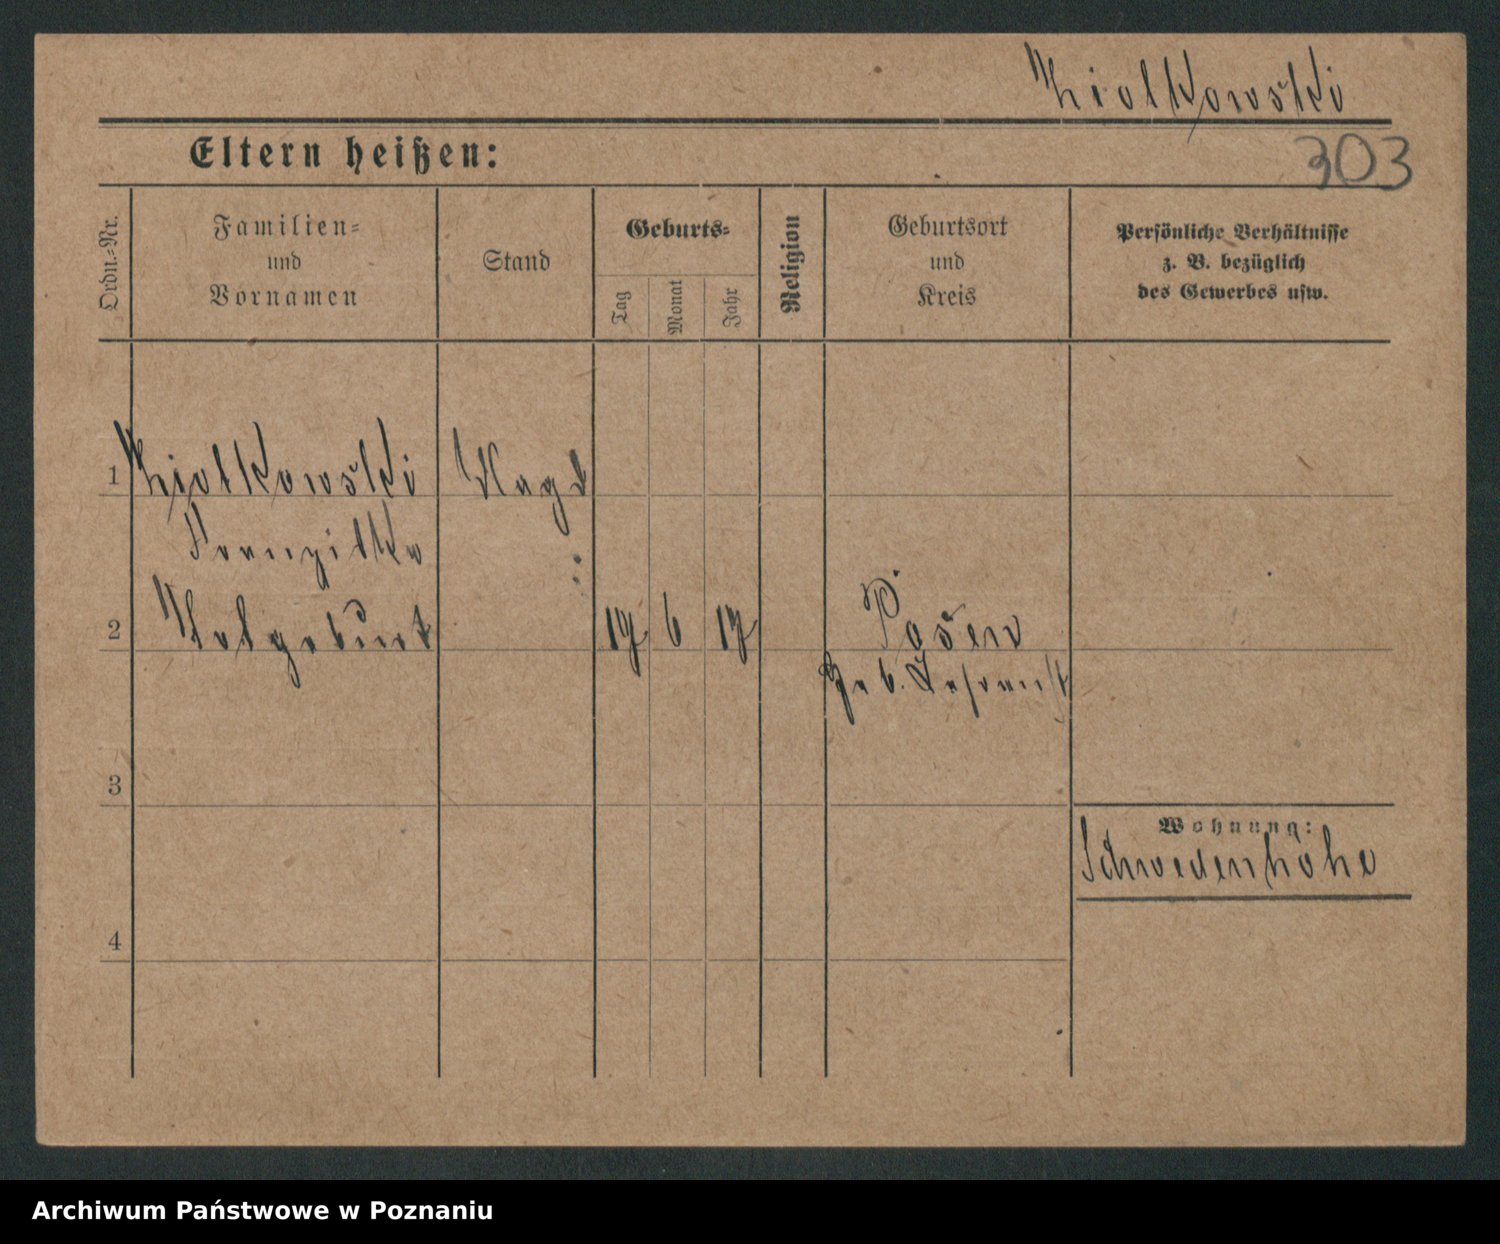 Ziolkowski
303
Eltern heißen:
Ordn.-Nr.
Familien-
und
Vornamen
Stand
Geburts-
Tag
Monat
Jahr
Religion
Geburtsort
und
Kreis
Persönliche Verhältnisse
z. B. bezüglich
des Gewerbes usw.
1
Ziolkowski
Magd
Franziska
2
17 6 17
Posen
Geb.
3
Wohnung:
Schwedenhöhe
4
Archiwum Państwowe w Poznaniu